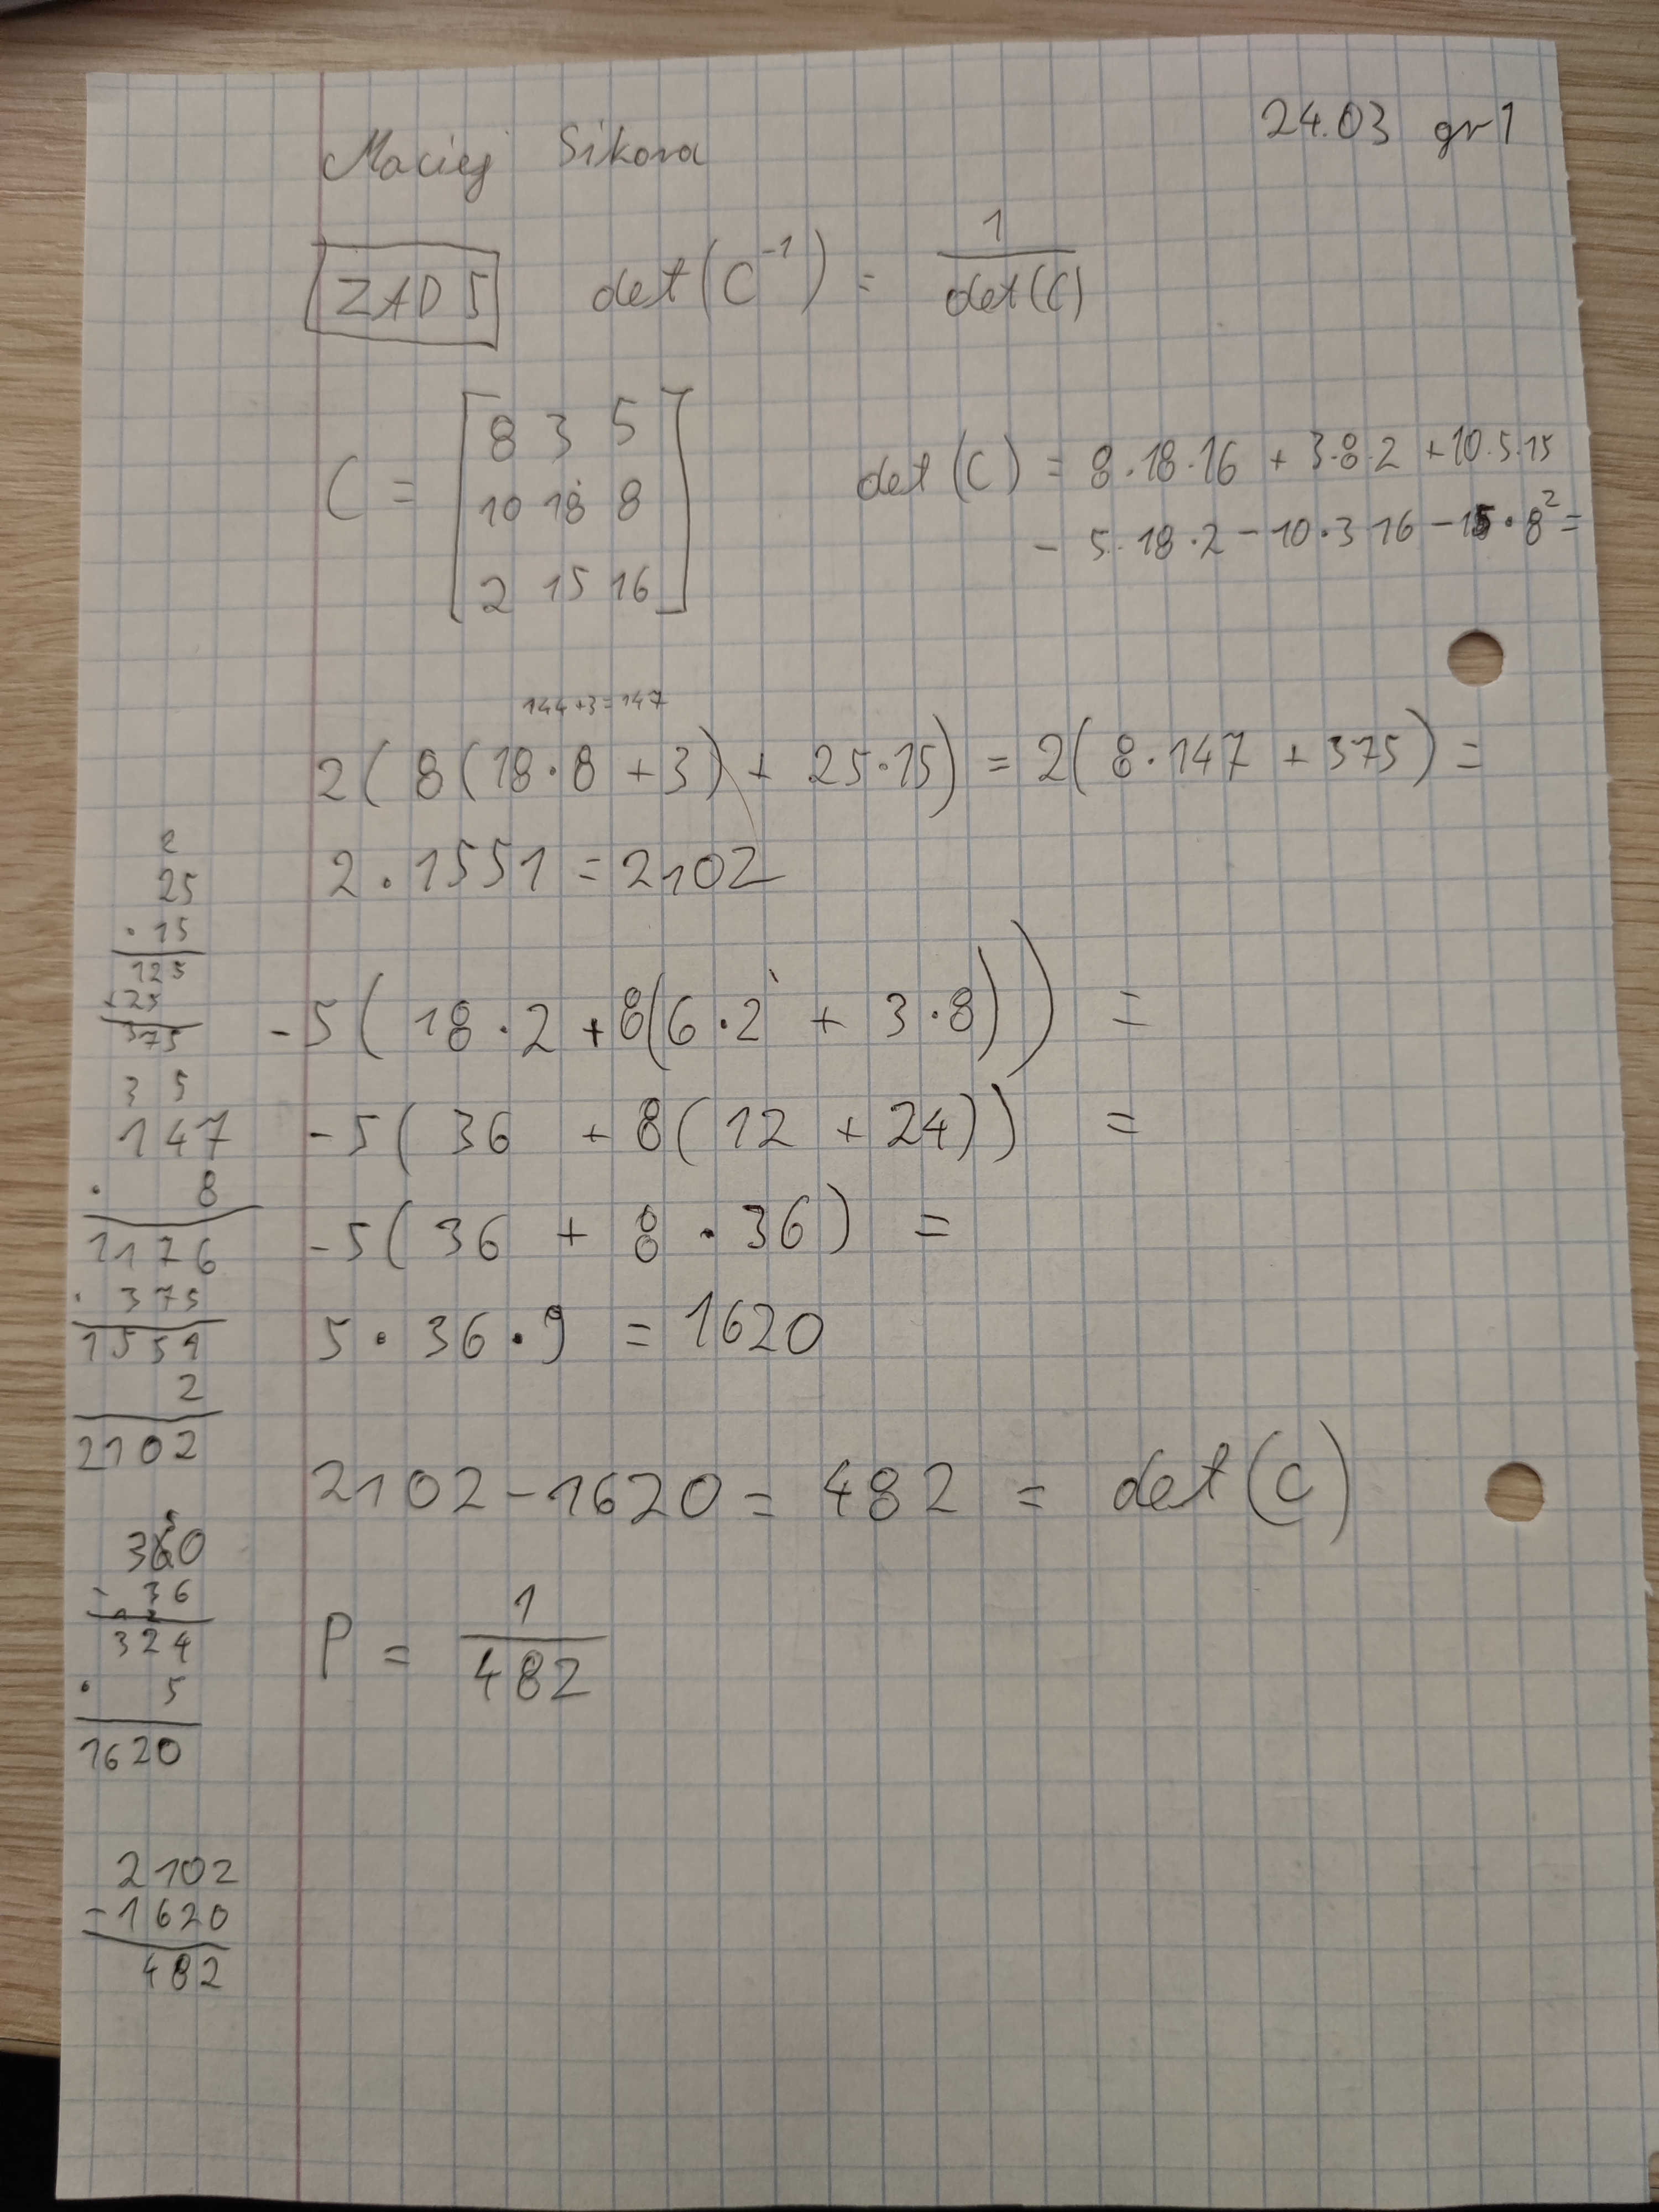 24.03 gr 1
Maciej Sikora
ZAD 5 det(C⁻¹) = 1/det(C)
C = [8 3 5
10 18 8
2 15 16]
det(C) = 8·18·16 + 3·8·2 + 10·5·15
- 5·18·2 - 10·3·16 - 15·8² =
144+3=147
2(8(18·8 + 3) + 25·15) = 2(8·147 + 375) =
2·1551 = 2102
-5(18·2 + 8(6·2 + 3·8)) =
-5(36 + 8(12 + 24)) =
-5(36 + 8·36) =
5·36·9 = 1620
2102 - 1620 = 482 = det(C)
P = 1/482
2
25
·15
125
+25
375
3 5
147
· 8
1176
· 375
1551
2
2102
5
360
- 36
324
· 5
1620
2102
-1620
482